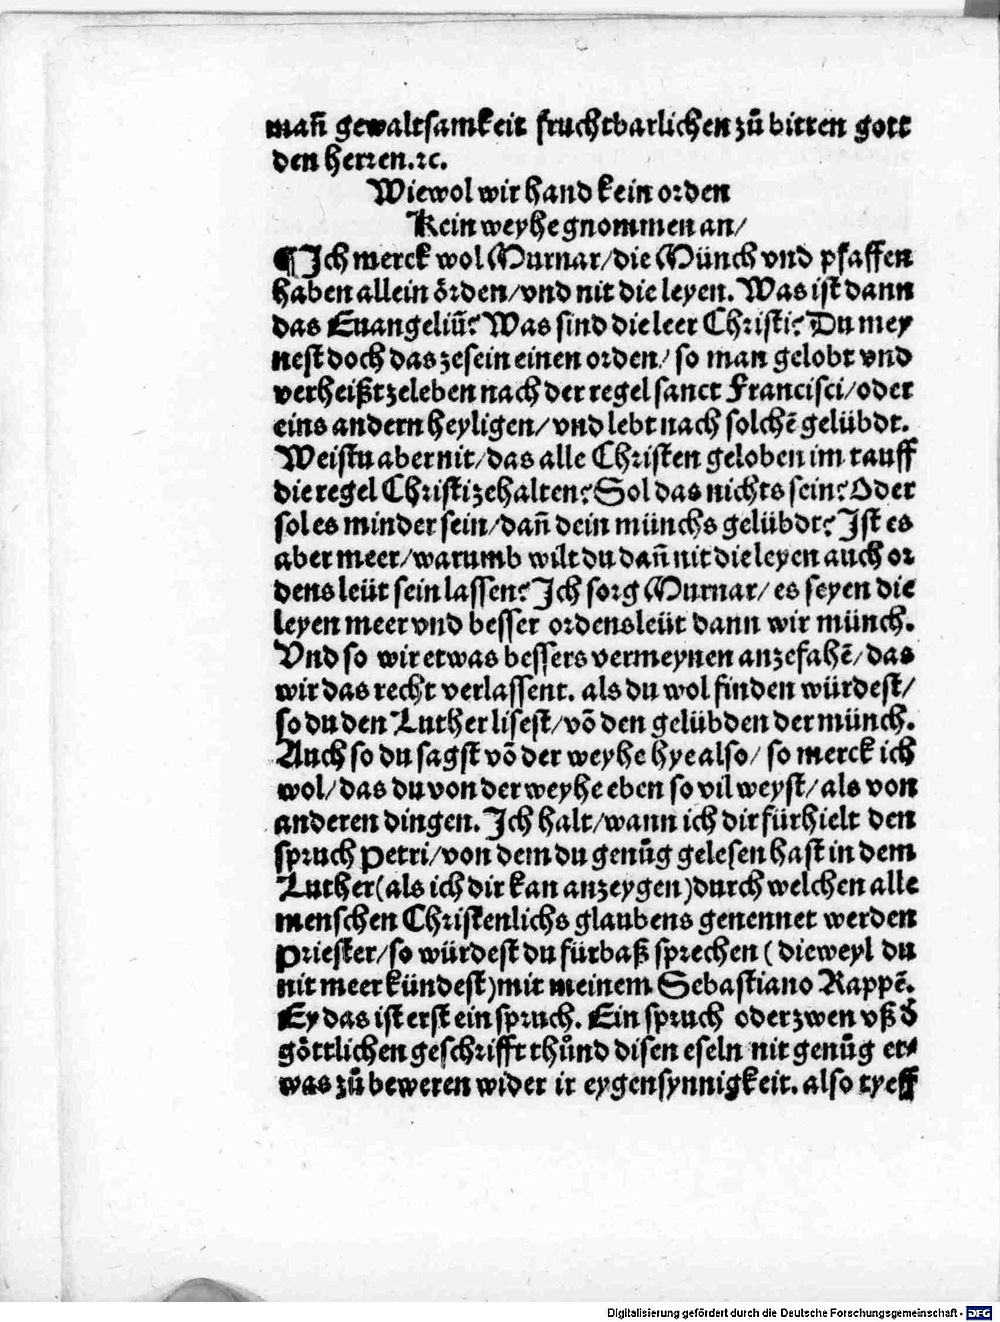 mañ gewaltsamkeit fruchtbarlichen zů bitten gott
den herren.ꝛc.
Wiewol wir hand kein orden
Kein weyhe gnommen an/
¶Ich merck wol Murnar/die Münch vnd pfaffen
haben allein örden/vnd nit die leyen. Was ist dann
das Euangeliū? Was sind die leer Christi? Du mey
nest doch das ze sein einen orden/ so man gelobt vnd
verheißt zeleben nach der regel sanct Francisci/oder
eins andern heyligen/vnd lebt nach solchē gelübdt.
Weistu aber nit/das alle Christen geloben im tauff
die regel Christi zehalten? Sol das nichts sein? Oder
sol es minder sein/dañ dein münchs gelübdt? Ist es
aber meer/warumb wilt du dañ nit die leyen auch or
dens leüt sein lassen? Ich sorg Murnar/ es seyen die
leyen meer vnd besser ordensleüt dann wir münch.
Vnd so wir etwas bessers vermeynen anzefahē/das
wir das recht verlassent. als du wol finden würdest/
so du den Luther lisest/vō den gelübden der münch.
Auch so du sagst vō der weyhe hye also/ so merck ich
wol/das du von der weyhe eben so vil weyst/als von
anderen dingen. Ich halt/wann ich dir fürhielt den
spruch Petri/von dem du genůg gelesen hast in dem
Luther(als ich dir kan anzeygen)durch welchen alle
menschen Christenlichs glaubens genennet werden
priester/so würdest du fürbaß sprechen ( dieweyl du
nit meer kündest)mit meinem Sebastiano Rappē.
Ey das ist erst ein spruch. Ein spruch oder zwen vß d̄
göttlichen geschrifft thůnd disen eseln nit genůg et⸗
was zů beweren wider ir eygensynnigkeit. also tyeff
Digitalisierung gefördert durch die Deutsche Forschungsgemeinschaft - DFG